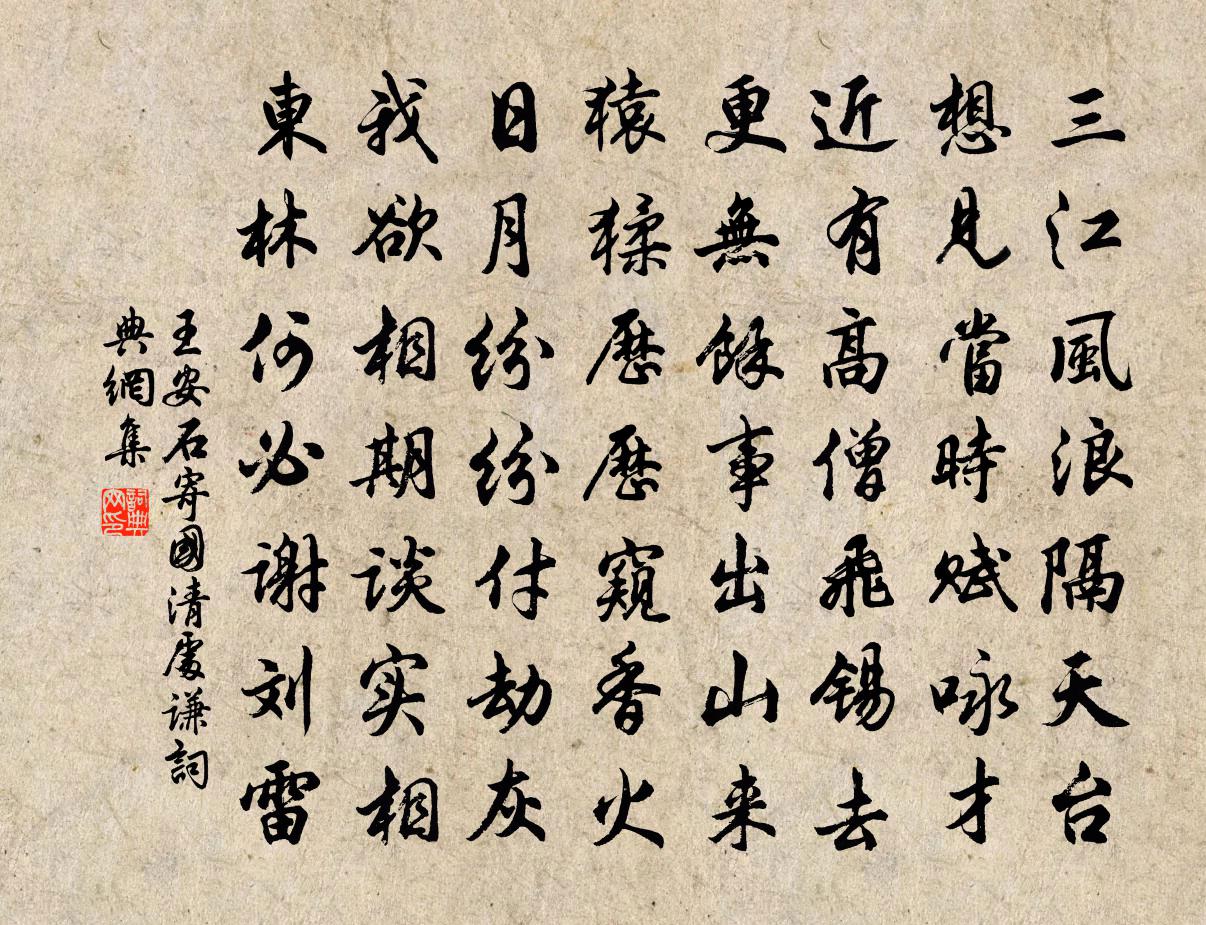 三江風浪隔天台
想見當時賦咏才
近有高僧飛錫去
更無餘事出山来
猿猱歷歷窺香火
日月紛紛付劫灰
我欲相期談实相
東林何必謝刘雷
王安石寄國清處謙詞
典網集
詞典
网印